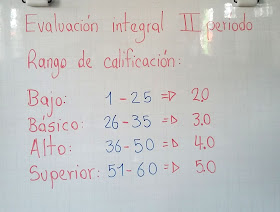 Evaluación integral II periodo
Rango de calificación:
Bajo: 1-25 => 2.0
Básico: 26-35 => 3.0
Alto: 36-50 => 4.0
Superior: 51-60 => 5.0